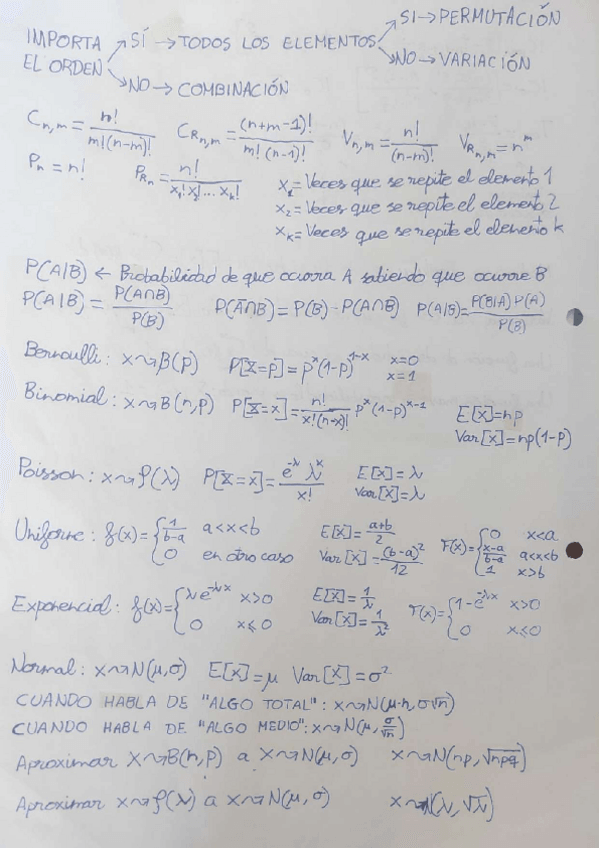 SI → PERMUTACIÓN
IMPORTA EL ORDEN → SÍ → TODOS LOS ELEMENTOS
NO → VARIACIÓN
NO → COMBINACIÓN
C_{n,m} = n!/(m!(n-m)!) C_{R_{n,m}} = (n+m-1)!/(m!(n-1)!) V_{n,m} = n!/(n-m)! V_{R_{n,m}} = n^m
P_n = n! P_{R_n} = n!/(x_1! x_2! ... x_k!) x_1 = Veces que se repite el elemento 1
x_2 = Veces que se repite el elemento 2
x_k = Veces que se repite el elemento k
P(A|B) ← Probabilidad de que ocurra A sabiendo que ocurre B
P(A|B) = P(A∩B)/P(B) P(Ā∩B) = P(B) - P(A∩B) P(A|B) = P(B|A) P(A)/P(B)
Bernoulli: x⤳B(p) P[X=p] = p^x (1-p)^{1-x} x=0 x=1
Binomial: x⤳B(n,p) P[X=x] = n!/(x!(n-x)!) p^x (1-p)^{x-1} E[X]=np
Var[X]=np(1-p)
Poisson: x⤳P(λ) P[X=x] = e^{-λ} λ^x/x! E[X]=λ
Var[X]=λ
Uniforme: f(x) = { 1/(b-a) a<x<b E[X] = (a+b)/2 F(x) = { 0 x<a
0 en otro caso Var[X] = (b-a)²/12 (x-a)/(b-a) a<x<b
1 x>b
Exponencial: f(x) = { λe^{-λx} x>0 E[X] = 1/λ F(x) = { 1-e^{-λx} x>0
0 x≤0 Var[X] = 1/λ² 0 x≤0
Normal: x⤳N(μ,σ) E[X]=μ Var[X]=σ²
CUANDO HABLA DE "ALGO TOTAL": x⤳N(μ·n, σ√n)
CUANDO HABLA DE "ALGO MEDIO": x⤳N(μ, σ/√n)
Aproximar x⤳B(n,p) a x⤳N(μ,σ) x⤳N(np, √npq)
Aproximar x⤳P(λ) a x⤳N(μ,σ) x⤳N(λ, √λ)